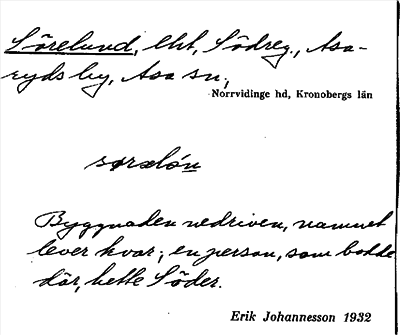 Sörelund, lht, Södreg., Asa-
ryds by, Asa sn,
Norrvidinge hd, Kronobergs län
Byggnaden nedriven, namnet
lever kvar; en person, som bodde
där, hette Söder.
Erik Johannesson 1932